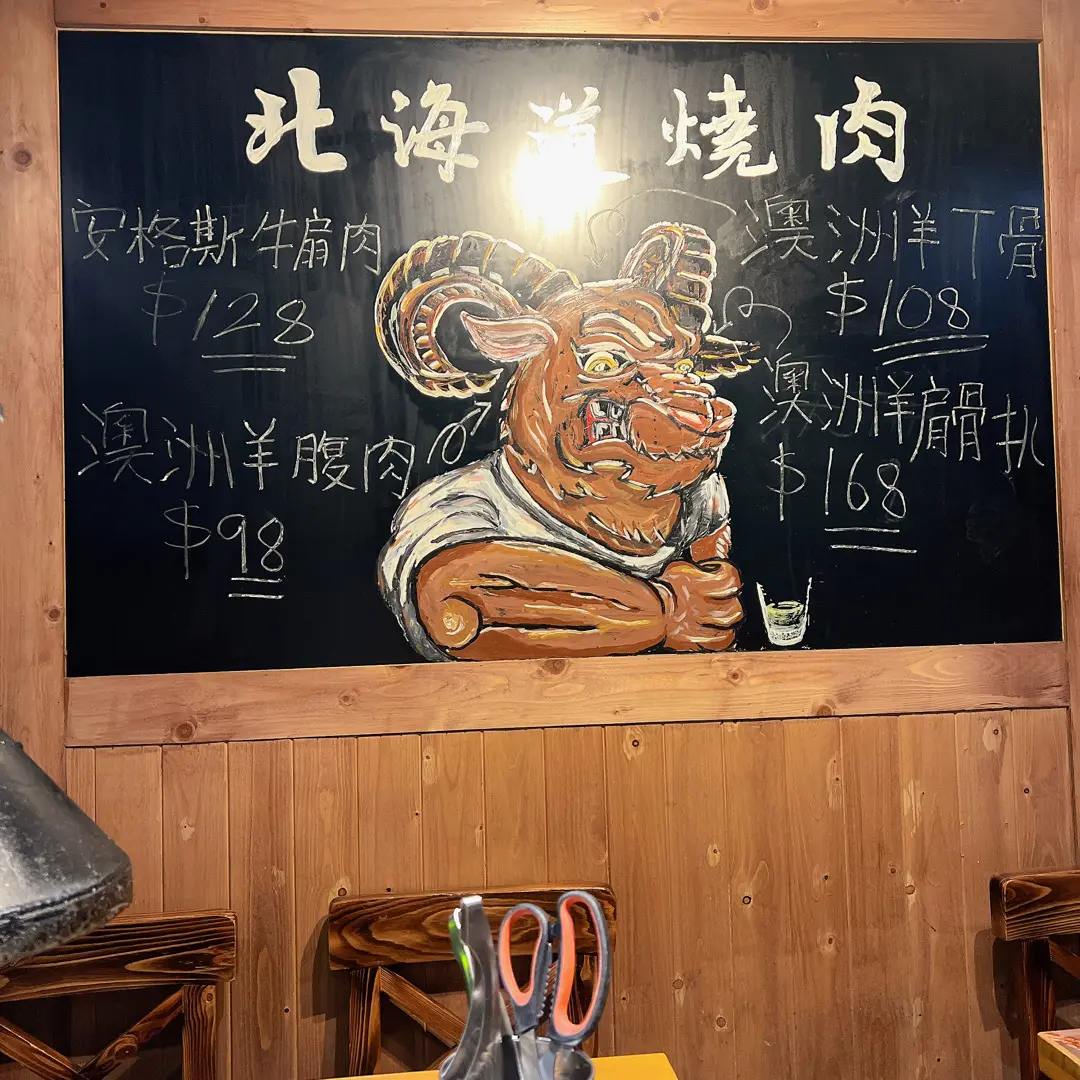 北海道燒肉
安格斯牛肩肉
$128
澳洲羊腹肉
$98
澳洲羊丁骨
$108
澳洲羊肩骨扒
$168